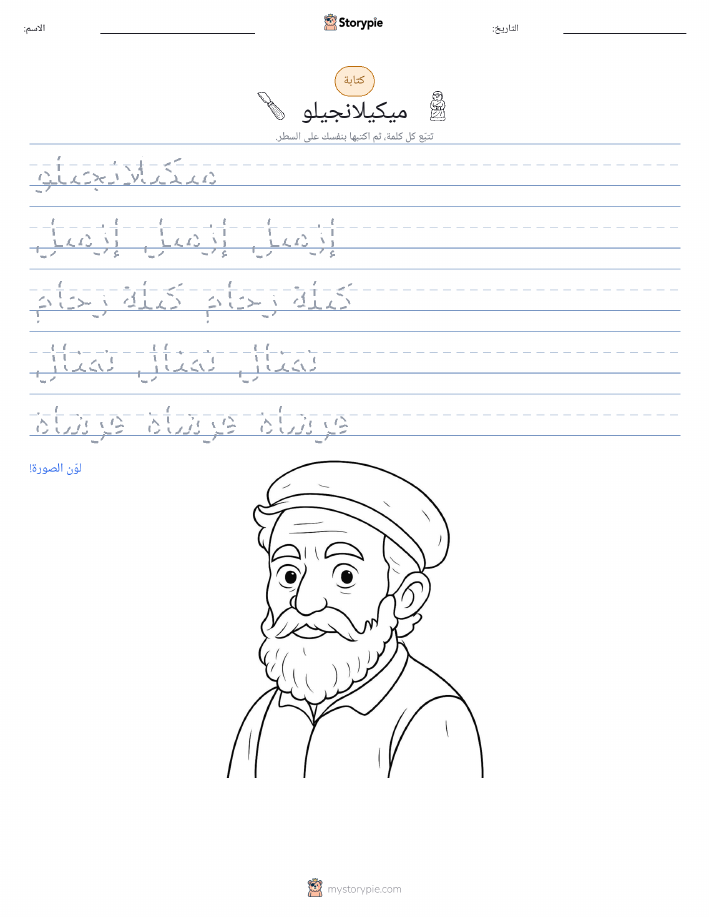 الاسم:
Storypie
التاريخ:
كتابة
ميكيلانجيلو
تتبّع كل كلمة، ثم اكتبها بنفسك على السطر.
ميكيلانجيلو
إزميل إزميل إزميل
كتلة رخام كتلة رخام
تمثال تمثال تمثال
فرشاة فرشاة فرشاة
لوّن الصورة!
mystorypie.com